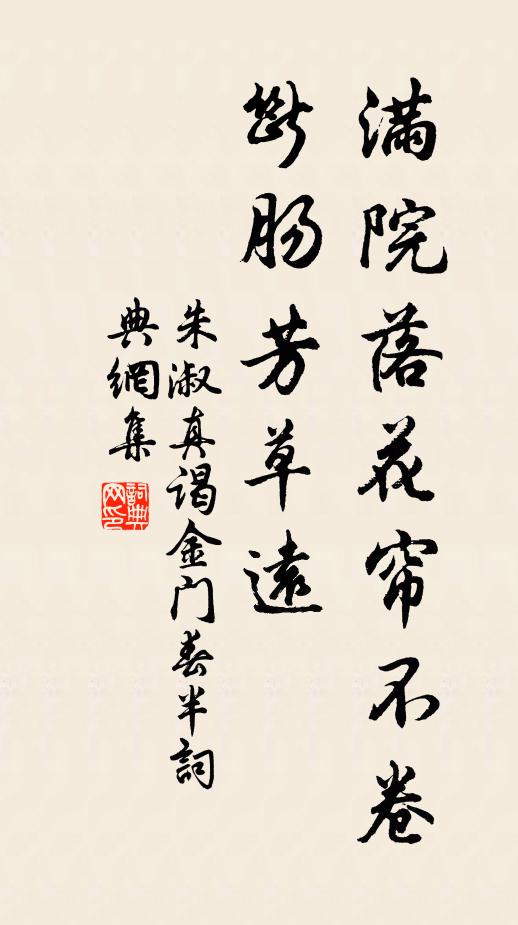 滿院落花帘不卷
斷肠芳草遠
朱淑真谒金门春半詞
典網集
詞典網印